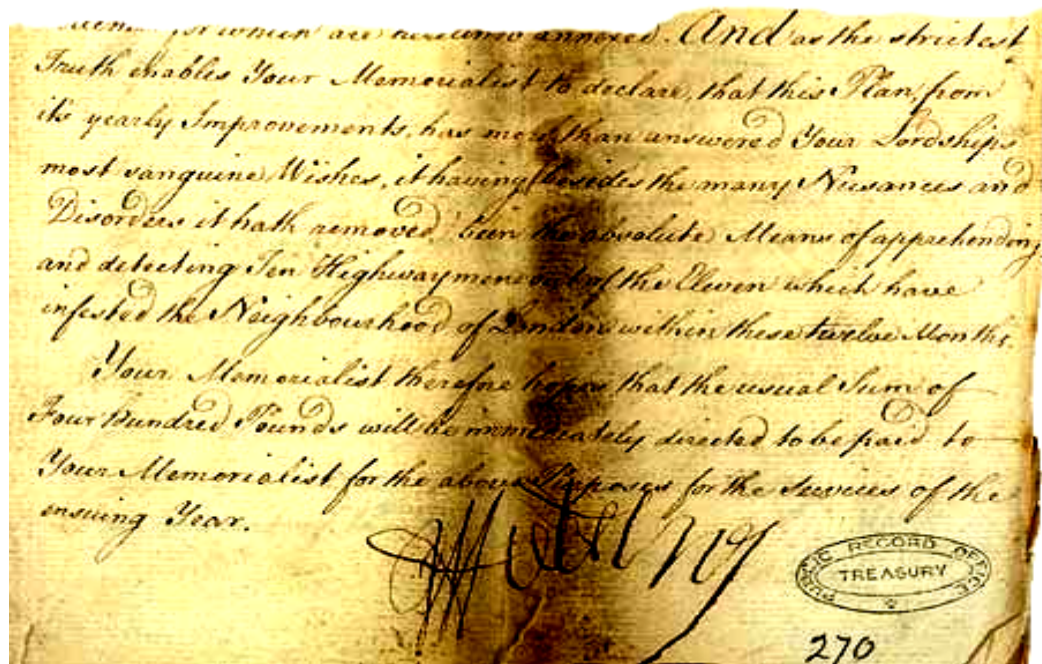 for which are annexed. And as the strictest
Truth enables Your Memorialist to declare, that this Plan, from
its yearly Improvements, has more than answered Your Lordships
most sanguine Wishes, it having (besides the many Nusances and
Disorders it hath removed) been the absolute Means of apprehending
and detecting Ten Highwaymen out of the Eleven which have
infested the Neighbourhood of London within these twelve Months.
Your Memorialist therefore hopes that the usual Sum of
Four Hundred Pounds will be immediately directed to be paid to
Your Memorialist for the above Purposes for the Services of the
ensuing Year.
PUBLIC RECORD OFFICE
TREASURY
270